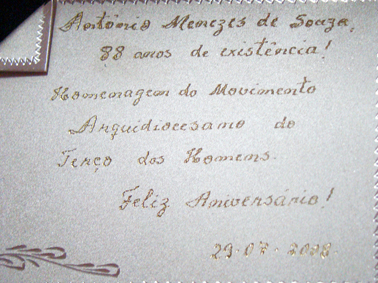 Antônio Menezes de Souza,
88 anos de existência!
Homenagem do Movimento
Arquidiocesano do
Terço dos Homens.
Feliz Aniversário!